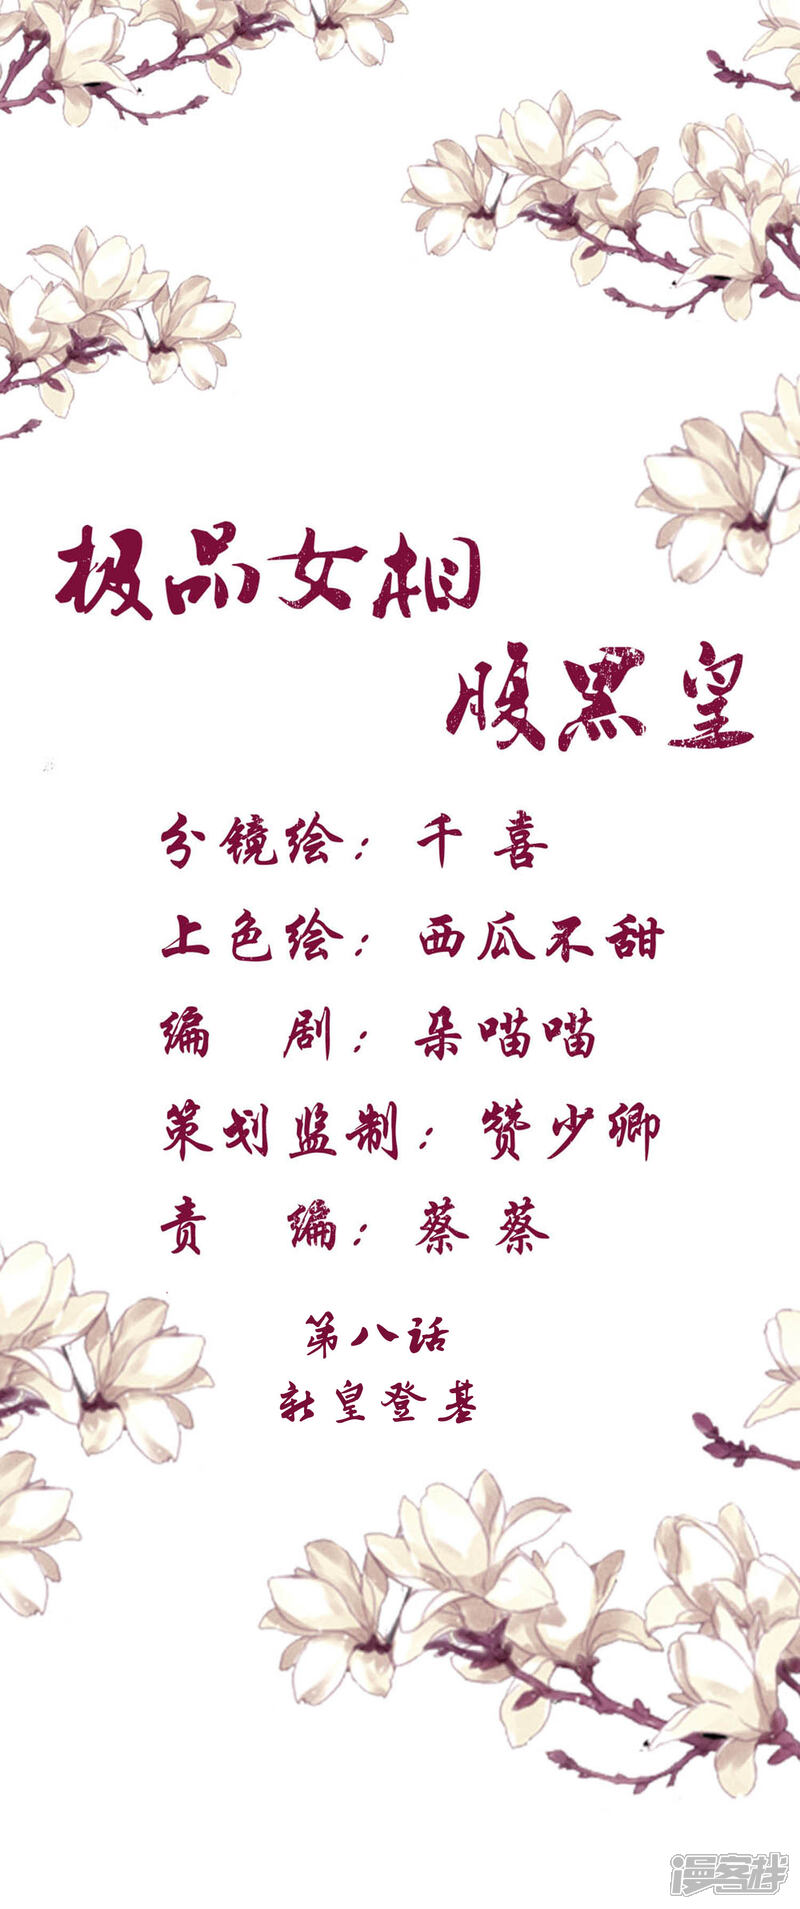 极品女相
腹黑皇
分镜绘：千喜
上色绘：西瓜不甜
编剧：朵喵喵
策划监制：赞少卿
责编：蔡蔡
第八话
新皇登基
漫客栈